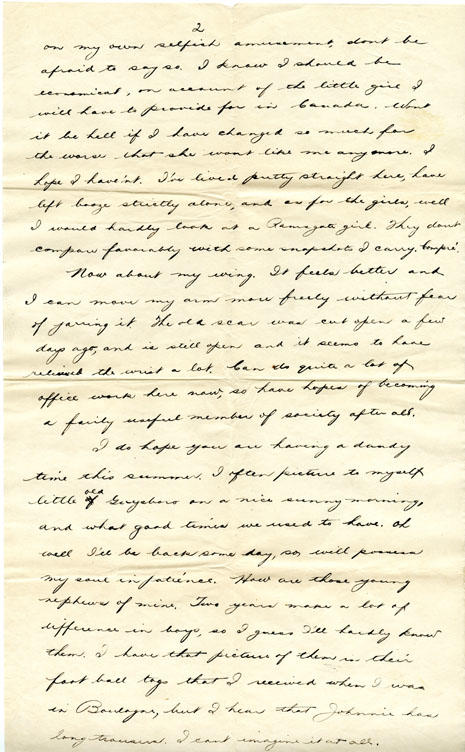 2
on my own selfish amusement, dont be
afraid to say so. I know I should be
economical, on account of the little girl I
will have to provide for in Canada. Wont
it be hell if I have changed so much for
the worse, that she wont like me anymore. I
hope I have'nt. I've lived pretty straight here, have
left booze strictly alone, and as for the girls, well
I would hardly look at a Ramsgate girl. They dont
compare favorably with some snapshots I carry. Compré.
Now about my wing. It feels better and
I can move my arm more freely without fear
of jarring it. The old scar was cut open a few
days ago, and is still open and it seems to have
relieved the wrist a lot. Can do quite a lot of
office work here now, so have hopes of becoming
a fairly useful member of society after all.
I do hope you are having a dandy
time this summer. I often picture to myself
little old Guysboro on a nice sunny morning,
and what good times we used to have. Oh
well I'll be back some day, so will possess
my soul in patience. How are those young
nephews of mine. Two years make a lot of
difference in boys, so I guess I'll hardly know
them. I have that picture of them in their
foot ball togs that I received when I was
in Boulogne, but I hear that Johnnie has
long trousers. I cant imagine it at all.